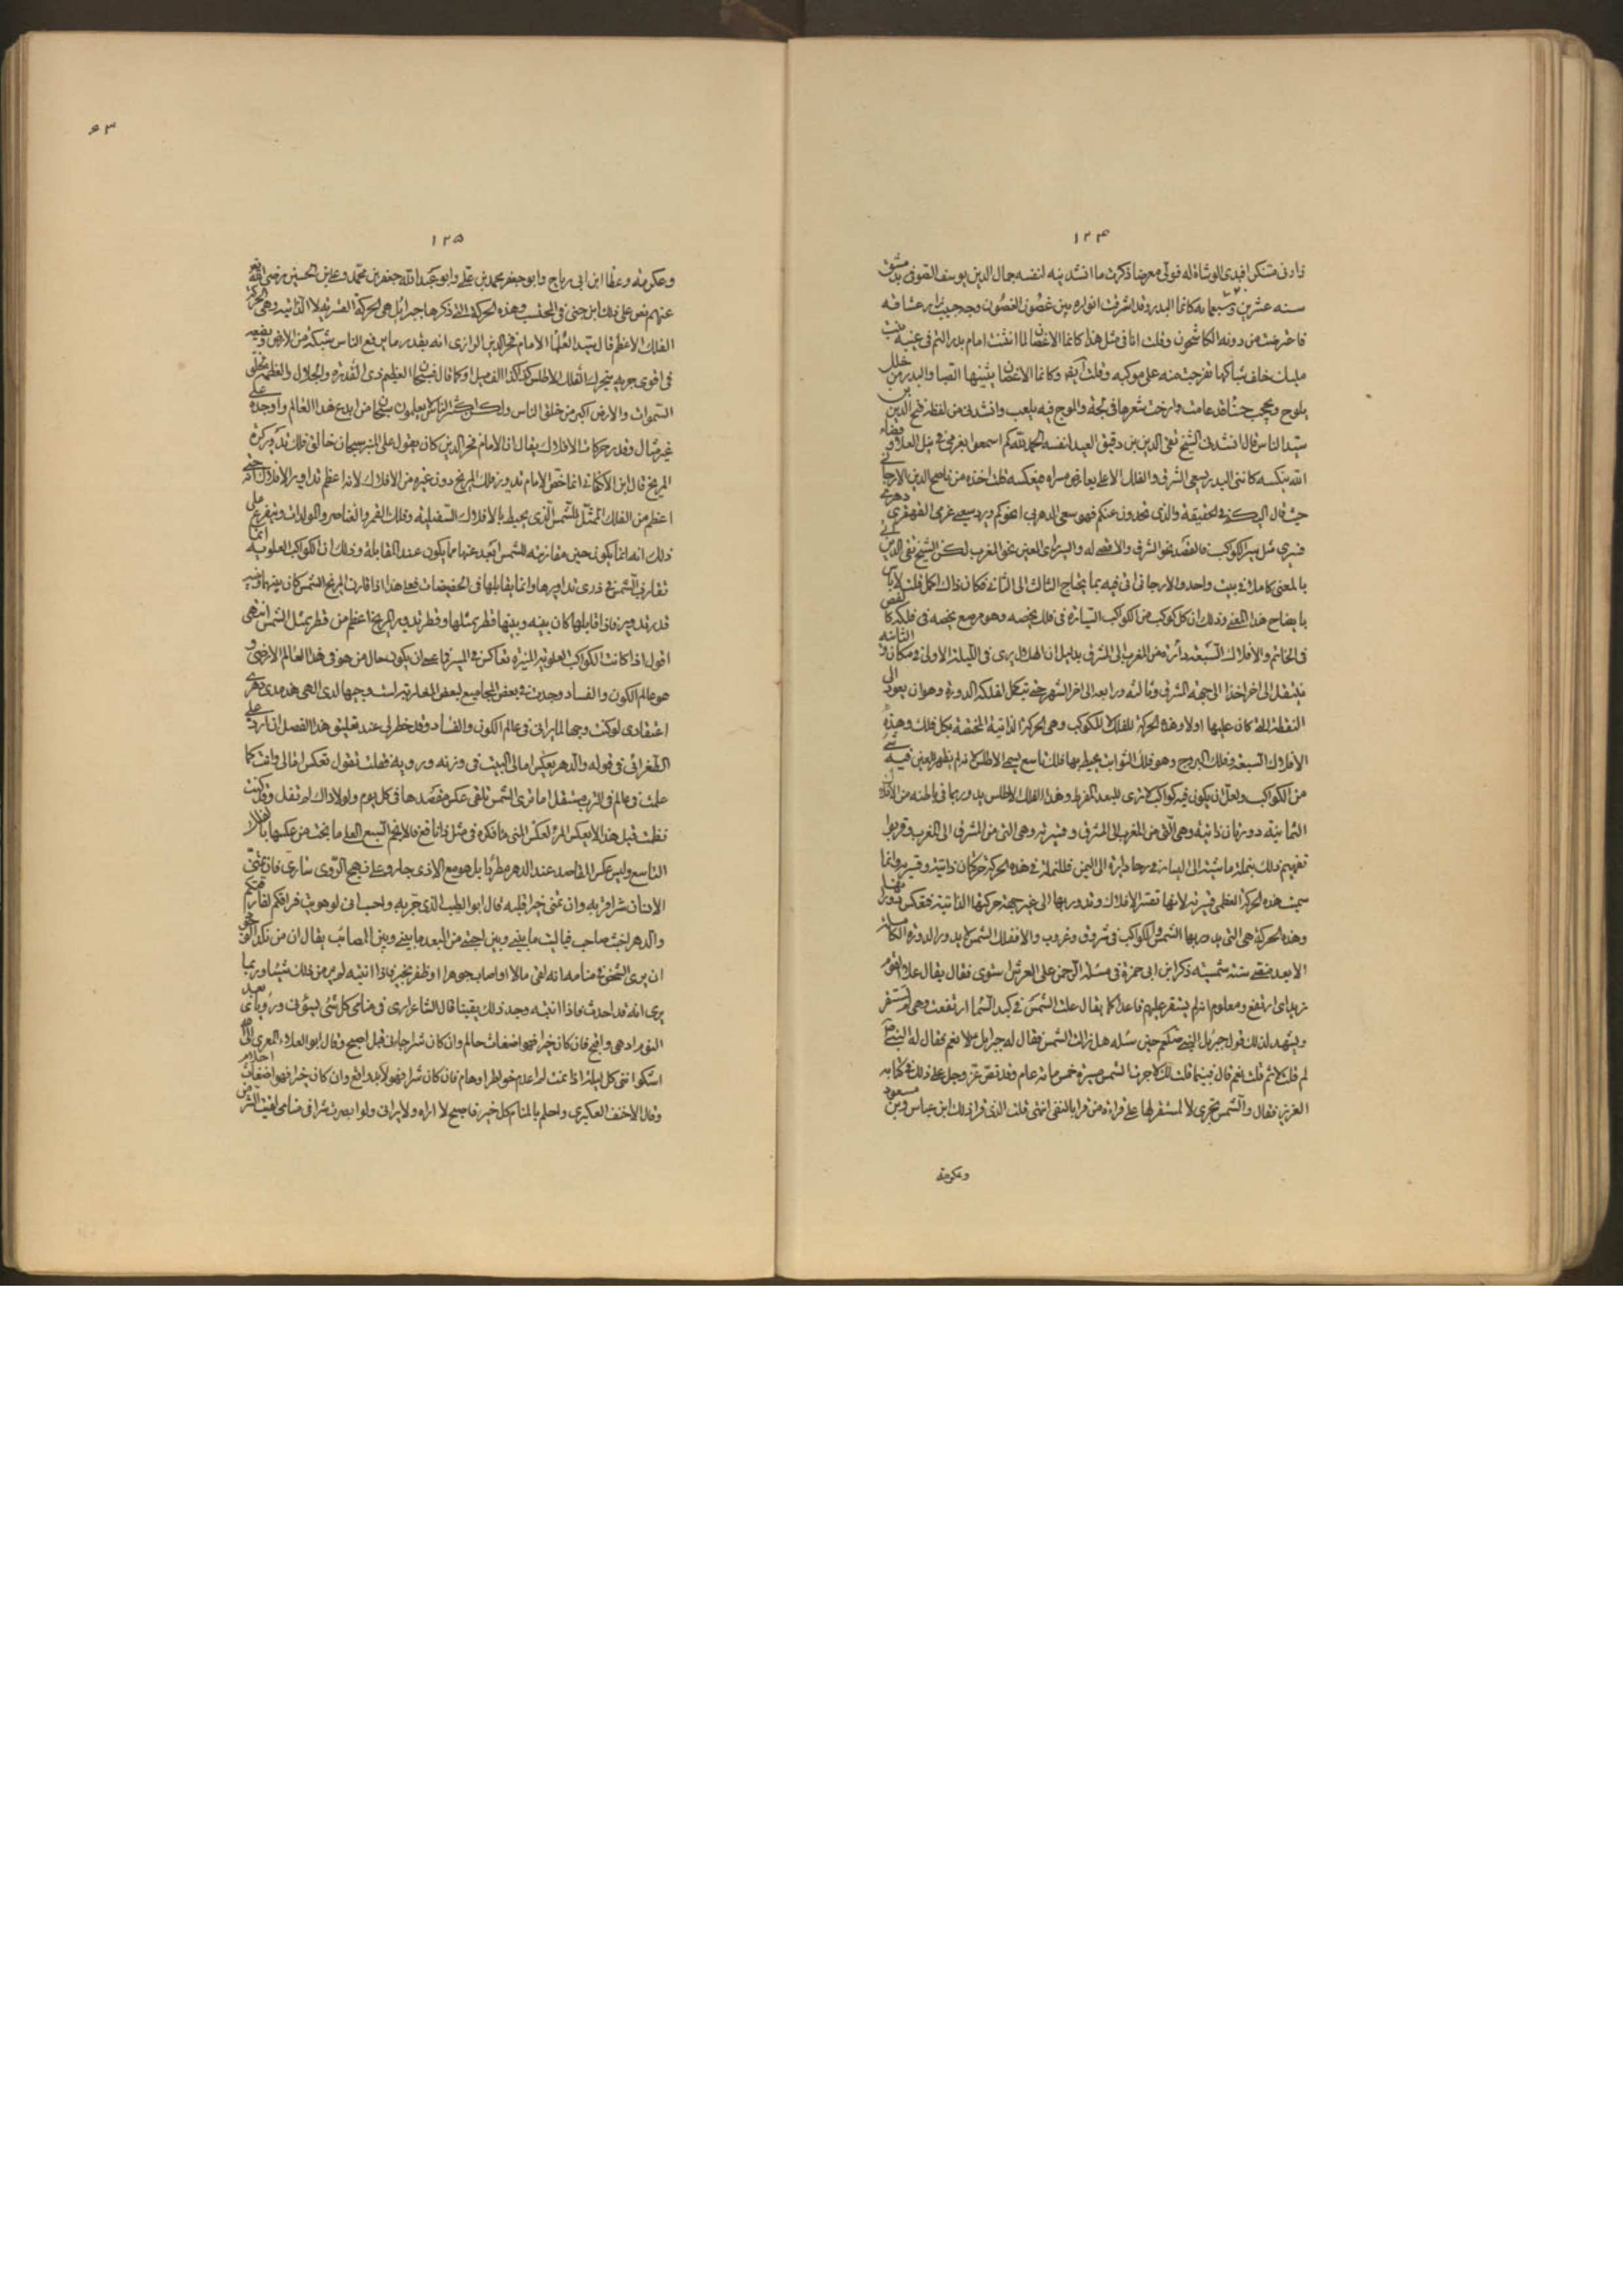 ١٢۴
سنه عشرين وسبعمايه كانما البدر وقد اشرقت انواره من غصون الغصون وجه حبيب زار عشاقه
فاعترضت من دونه الكاشحون وقلت انا فى مثل هذا كانما الاغصان لما انثنت امام بدر التم فى غيهبه بنت
مليك خلف شباكها تفرجت منه على موكبه وقلت ايضا وكانما الاغصان يثنيها الصبا والبدر من خلل
يلوح ويحجب حسناء قد عامت وارخت شعرها فى لجة والموج فيه يلعب وانشدنى من لفظه فتح الدين
سيد الناس قال انشدنى الشيخ تقى الدين بن دقيق العيد لنفسه الحمد لله كم اسمعو بعزمى فى نيل العلا وقضاء
الله ينكسه كاننى البدر يبغى الشرق والفلك الاعلى يعارض مسراه فيعكسه قلت اخذه من ناصح الدين الارجانى
حيث قال
بالمعنى كاملا فى بيت واحد والارجانى اتى فيه بما يحتاج الثالث الى الثانى فكان ذاك اكمل قلت لا باس
بايضاح هذا المعنى وذلك ان كل كوكب من الكواكب السيارة فى فلك يخصه وهو مرصع بخصه فى فلكه كالفص
فى الخاتم والافلاك السبعة دائرة من المغرب الى المشرق بدليل ان الهلال يرى فى الليلة الاولى فى مكان وفى الثانيه
النقطة التى كان عليها اولا وهذه الحركة للفلك لا للكوكب وهى الحركة الذاتية المختصة بكل فلك وهذه
الافلاك السبعة وفلك البروج وهو فلك الثوابت يحيط بها فلك تاسع يسمى الاطلس لانه لم يظهر للعين فيه شئ
من الكواكب ولعل ان يكون فيه كواكب لا ترى للبعد المفرط وهذا الفلك الاطلس يدور بما فى باطنه من الافلاك
الثمانية دورتان ذاتية وهى التى من المغرب الى المشرق وقسرية وهى التى من المشرق الى المغرب وقربوا
تفهيم ذلك بنملة ماشية الى اليسار فى رحا دايرة الى اليمين فللنملة فى هذه الحركة حركتان ذاتية وقسرية وانما
سميت هذه الحركة العظمى قسرية لانها تقسر الافلاك وتدور بها الى غير جهة حركتها الذاتية فتعكس دورتها
وهذه الحركة هى التى يصير بها الشمس والكواكب فى شروق وغروب والا ففلك الشمس لا يدور الدورة الكاملة
الا بعد مضى سنة شمسيه ذكر ابن ابى حمزة فى مسئلة الرحمن على العرش استوى فقال يقال علا القوم
زيد اى ارتفع ومعلوم انه لم يستقر عليهم قاعدا كما يقال علت الشمس فى كبد السما ارتفعت وهى لم تستقر
ويشهد لذلك قول جبريل للنبى صلعم حين سئله هل زالت الشمس فقال له جبرايل لا نعم فقال له النبى
لم قلت لا ثم قلت نعم قال بينما قلت لك لا جرت الشمس مسيرة خمس مائة عام وقد نص عز وجل على ذلك فى كتابه
العزيز فقال والشمس تجرى لا لمستقر لها على قراءة من قرا بالنفى انتهى قلت الذى قرا بذلك ابن عباس وابن مسعود
وعكرمة
۶٣
١٢۵
وعكرمة وعطا ابن ابى رباح وابو جعفر محمد بن على وابو عبد الله جعفر بن محمد وعلى بن الحسين رضى الله
عنهم نص على ذلك ابن جنى فى المحتسب وهذه الحركة التى ذكرها جبرائيل هى الحركة القسرية لا الذاتية وهى الحركة
الفلك الاعظم قال سيد العلما الامام فخر الدين الرازى انه بقدر ما يرفع الناس سنبكه من الارض ويضعه
فى اقوى جريه يتحرك الفلك الاطلس كذا كذا الف ميل او كما قال فسبحان العظيم ذى القدرة والجلال والعظمة لخلق
السموات والارض اكبر من خلق الناس ولكن اكثر الناس لا يعلمون سبحان من ابدع هذا العالم واوجده على
غير مثال وقدر حركات الافلاك يقال ان الامام فخر الدين كان يقول على المنبر سبحان خالق فلك تدوير كرة
المريخ قال ابن الاكفانى انما خص الامام تدوير فلك المريخ دون غيره من الافلاك لانه اعظم تداوير الافلاك حتى انه
اعظم من الفلك الممثل للشمس الذى يحيط بالافلاك السفلية وفلك القمر والعناصر والمولدات ويتفرع على
ذلك انه انما يكون حين مقارنته للشمس ابعد عنها مما يكون عند المقابلة وذلك ان الكواكب العلوية انما
تقارن الشمس فى ذرى تداويرها وانما يقابلها فى الحضيضات فعلى هذا اذا قارن المريخ الشمس كان بينهما
قدر تدويره فاذا قابلها كان بينه وبينها قطر ممثلها وقطر تدوير المريخ اعظم من قطر ممثل الشمس انتهى
اقول اذا كانت الكواكب العلوية المنيرة تعاكس فى المسير فما عسى ان يكون حال من هو فى هذا العالم الارضى و
هو عالم الكون والفساد وجدت فى بعض المجاميع لبعض المغاربة
اعتقادى لو كنت وجها لما يرانى فى عالم الكون والفساد وقد خطر لى عند تعليق هذا الفصل ان ارد على
الطغرائى فى قوله والدهر يعكس امالى البيت فى وزنه ورويه فقلت تقول تعكس امالى وانت كما
علمت فى عالم فى الترب مستفل اما ترى الشمس تلقى عكس مقصدها فى كل يوم ولولا ذاك لم تفل وقد كنت
نظمت قبل هذا لا يعكس المرء لعكس المنى
التاسع وليس عكس المقاصد عند الدهر مطردا بل هو مع الاذى جار وعلى نهج الردى سارى فان تمنى
الانسان شرا فربه وان تمنى خيرا قلبه قال ابو الطيب الذى جربه واحب انى لو هويت فراقكم لفارقتكم
والدهر اخبث صاحب فيا ليت ما بينى وبين احبتى من البعد ما بينى وبين المصائب يقال ان من نكد الدهر
ان يرى الشخص فى منامه انه لقى مالا او اصاب جوهرا او ظفر بخير فاذا انتبه لم ير من ذلك شيئا وربما
يرى انه قد احدث فاذا انتبه وجد ذلك يقينا قال الشاعر ارى فى منامى كل شئ يسوئنى ورؤياى بعد
النوم ادهى واقبح فان كان خيرا فهو اضغاث حالم وان كان شرا جائنى قبل اصبح وقال ابو العلاء المعرى الى الله
اشكو اننى كل ليلة اذا نمت لم اعدم خواطر اوهام فان كان شرا فهو لا بد واقع وان كان خيرا فهو اضغاث احلام
وقال الاحنف العكبرى واحلم بالمنام كل خير فاصبح لا اراه ولا يرانى ولو ابصرت شرا فى منامى لقيت الشر من